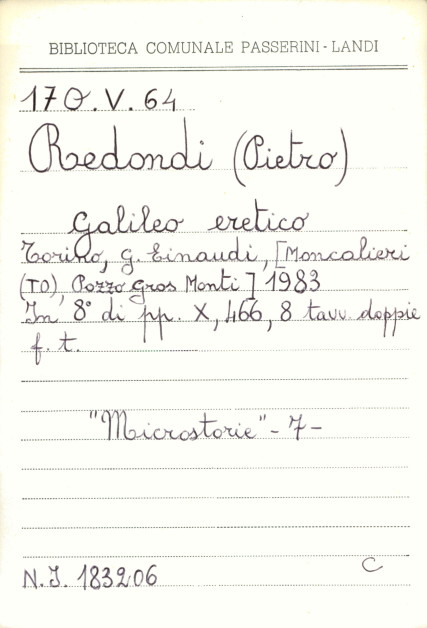 BIBLIOTECA COMUNALE PASSERINI-LANDI
170.V.64
Redondi (Pietro)
Galileo eretico
Torino, G. Einaudi, [Moncalieri
(TO), Pozzo Gros Monti] 1983
In 8° di pp. X, 466, 8 tavv. doppie
f. t.
"Microstorie" - 7 -
C
N.I. 183206